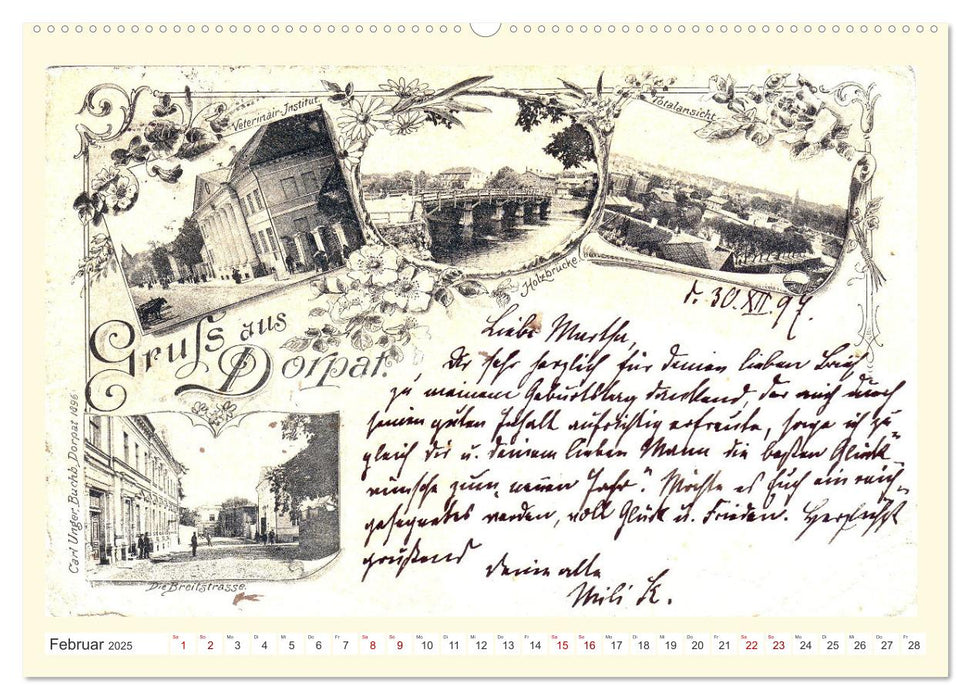 Veterinair-Institut.
Totalansicht.
Holzbrücke
Gruss aus
Dorpat.
Carl Unger, Buchh, Dorpat 1896
Die Breitstrasse.
d. 30. XII. 97.
Liebe Martha,
Dir sehr herzlich für deinen lieben Brief
zu meinem Geburtstag dankend, der mich durch
seinen guten Inhalt aufrichtig erfreute, sage ich zu
gleich dir u. deinem lieben Mann die besten Glück
wünsche zum "neuen Jahr". Möchte es Euch ein reich
gesegnetes werden, voll Glück u. Frieden. Herzlichst
grüßend
deine alte
Mili K.
Februar 2025
Sa So Mo Di Mi Do Fr Sa So Mo Di Mi Do Fr Sa So Mo Di Mi Do Fr Sa So Mo Di Mi Do Fr
1 2 3 4 5 6 7 8 9 10 11 12 13 14 15 16 17 18 19 20 21 22 23 24 25 26 27 28